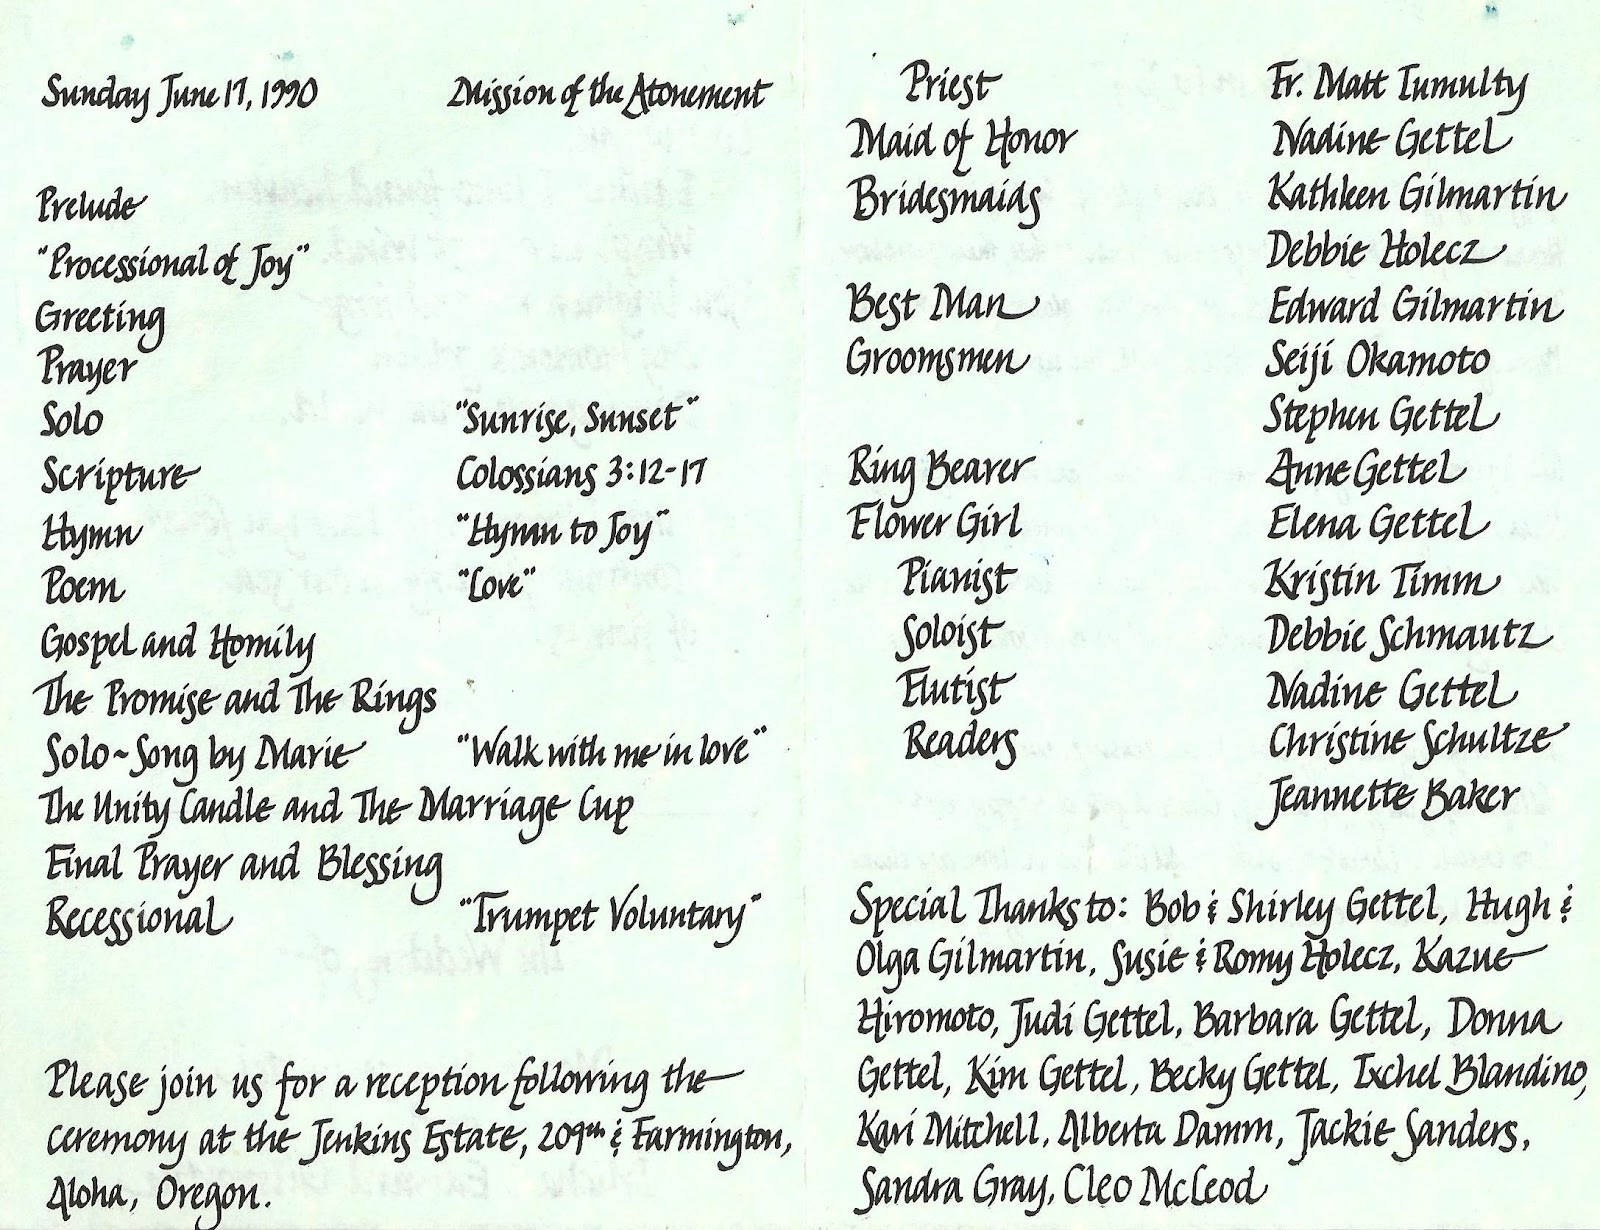 Sunday June 17, 1990 Mission of the Atonement
Prelude
"Processional of Joy"
Greeting
Prayer
Solo "Sunrise, Sunset"
Scripture Colossians 3:12-17
Hymn "Hymn to Joy"
Poem "Love"
Gospel and Homily
The Promise and The Rings
Solo~Song by Marie "Walk with me in love"
The Unity Candle and The Marriage Cup
Final Prayer and Blessing
Recessional "Trumpet Voluntary"
Please join us for a reception following the
ceremony at the Jenkins Estate, 209th & Farmington,
Aloha, Oregon.
Priest Fr. Matt Tumulty
Maid of Honor Nadine Gettel
Bridesmaids Kathleen Gilmartin
Debbie Holecz
Best Man Edward Gilmartin
Groomsmen Seiji Okamoto
Stephen Gettel
Ring Bearer Anne Gettel
Flower Girl Elena Gettel
Pianist Kristin Timm
Soloist Debbie Schmautz
Flutist Nadine Gettel
Readers Christine Schultze
Jeannette Baker
Special Thanks to: Bob & Shirley Gettel, Hugh &
Olga Gilmartin, Susie & Romy Holecz, Kazue
Hiromoto, Judi Gettel, Barbara Gettel, Donna
Gettel, Kim Gettel, Becky Gettel, Ixchel Blandino,
Kari Mitchell, Alberta Damm, Jackie Sanders,
Sandra Gray, Cleo McLeod